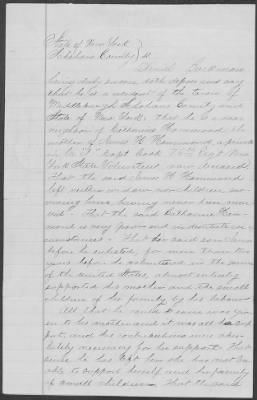 State of New York
Schoharie County } ss
Daniel Beekman
being duly sworn doth depose and say
that he is a resident of the town of
Middleburgh Schoharie County and
State of New York, that he is a near
neighbor of Catharine Hammond the
mother of James H. Hammond, a private
in the Capt. 76th Regt New
York State Volunteers now deceased.
That the said James H Hammond
left neither widow nor children sur-
viving him, having never been mar-
ried. That the said Catharine Ham-
mond is very poor and in destitute cir-
cumstances. That her said son James
before he enlisted, for more than two
years before he enlisted in the service
of the United States, almost entirely
supported his mother and the small
children of her family by his labour
All that he could earn was given
to his mother and it was all her sup-
port, and his contributions were abso-
lutely necessary for her support. That
since he has left her she has not been
able to support herself and her family
of small children. That the said